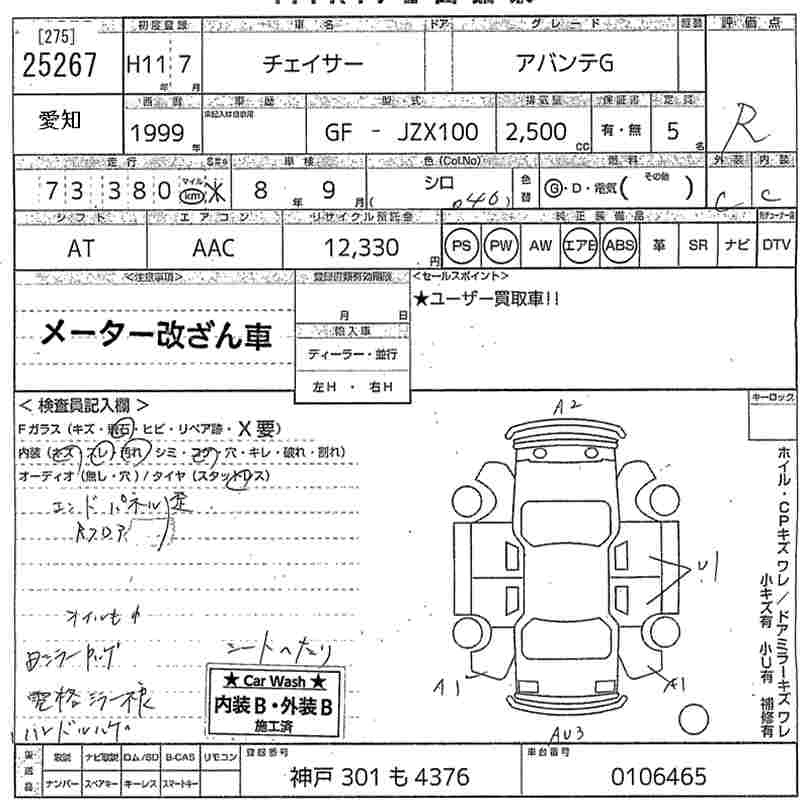 [275] 初度登録 車名 ドア グレード 評価点
25267 H11年 7月 チェイサー アバンテG
愛知 西暦 車歴 型式 排気量 保証書 定員 R
1999年 GF - JZX100 2,500 CC 有・無 5名
走行 車検 色(Col.No) 燃料 その他 外装 内装
73380 マイル km 8年 9月 シロ (040) 色替 G・D・電気( ) C C
シフト エアコン リサイクル預託金 純正装備品
AT AAC 12,330円 PS PW AW エアB ABS 革 SR ナビ DTV
<注意事項> 登録書類有効期限 <セールスポイント>
メーター改ざん車 月 日 ★ユーザー買取車!!
輸入車
ディーラー・並行
左H ・ 右H
<検査員記入欄> キーロック
Fガラス(キズ・飛石・ヒビ・リペア跡・X要)
内装(キズ スレ 汚れ シミ・コゲ・穴・キレ・破れ・割れ)
オーディオ(無し・穴)/タイヤ(スタッドレス)
エンドパネル歪
Rフロア
オイルもれ
シートへたり
ハンドルハゲ
A2
U1
A1
A1
AU3
ホイル・CPキズ ワレ/ドアミラーキズ ワレ
小キズ有 小U有 補修有
★ Car Wash ★
内装B・外装B
施工済
取説 ナビ取説 ロム/SD B-CAS リモコン 登録番号 車台番号
ナンバー スペアキー キーレス スマートキー 神戸 301 も 4376 0106465